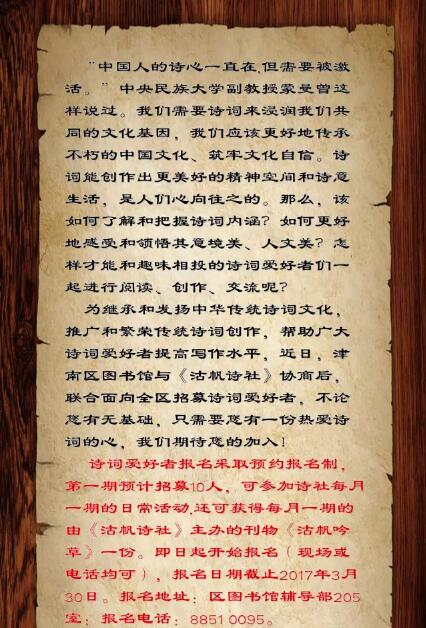 “中国人的诗心一直在,但需要被激
活。”中央民族大学副教授蒙曼曾这
样说过。我们需要诗词来浸润我们共
同的文化基因，我们应该更好地传承
不朽的中国文化、筑牢文化自信。诗
词能创作出更美好的精神空间和诗意
生活，是人们心向往之的。那么，该
如何了解和把握诗词内涵？如何更好
地感受和领悟其意境美、人文美？怎
样才能和趣味相投的诗词爱好者们一
起进行阅读、创作、交流呢？
为继承和发扬中华传统诗词文化，
推广和繁荣传统诗词创作，帮助广大
诗词爱好者提高写作水平，近日，津
南区图书馆与《沽帆诗社》协商后，
联合面向全区招募诗词爱好者，不论
您有无基础，只需要您有一份热爱诗
词的心，我们期待您的加入！
诗词爱好者报名采取预约报名制，
第一期预计招募10人，可参加诗社每月
一期的日常活动,还可获得每月一期的
由《沽帆诗社》主办的刊物《沽帆吟
草》一份。即日起开始报名（现场或
电话均可），报名日期截止2017年3月
30日。报名地址：区图书馆辅导部205
室；报名电话：88510095。